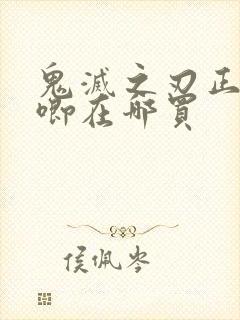 鬼滅之刃正
唧在哪買
侯佩岑